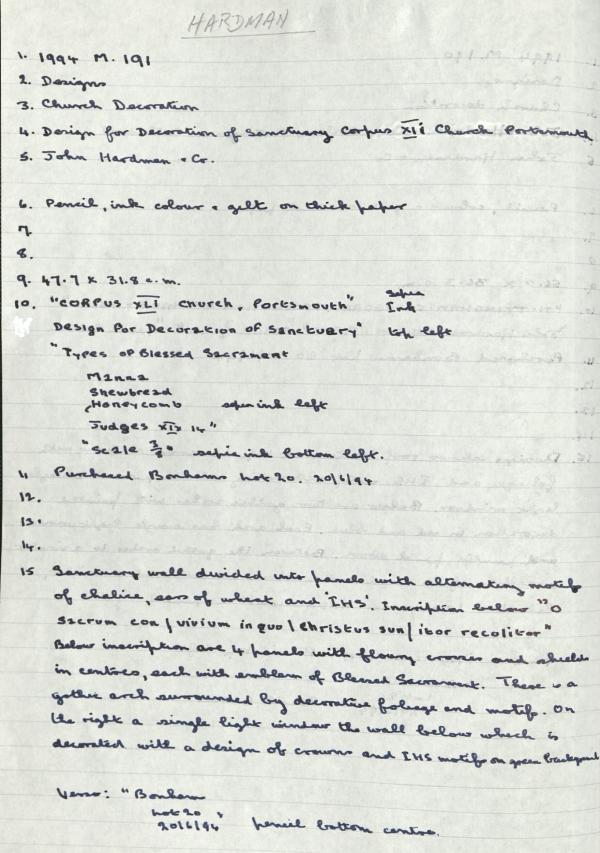 HARDMAN
1. 1994 M. 191
2. Designs
3. Church Decoration
4. Design for Decoration of Sanctuary Corpus XIi Church Portsmouth
5. John Hardman + Co.
6. Pencil, ink colour + gilt on thick paper
7.
8.
9. 47.7 x 31.8 c.m.
10. "CORPUS XLI Church, Portsmouth" sepia Ink
Design For Decoration of Sanctuary" top left
"Types of Blessed Sacrament
Manna
Shewbread
Honeycomb sepia ink left
Judges XIV 14"
"Scale 3/8" sepia ink bottom left.
11 Purchased Bonhams Lot 20. 20/6/94
12.
13.
14.
15 Sanctuary wall divided into panels with alternating motifs
of chalice, ears of wheat and 'IHS'. Inscription below "O
sacrum con/vivium in quo/Christus sum/itor recolitor"
Below inscription are 4 panels with floury crosses and shields
in centres, each with emblem of Blessed Sacrament. There is a
gothic arch surrounded by decorative foliage and motifs. On
the right a single light window the wall below which is
decorated with a design of crowns and IHS motifs on green background
Verso: "Bonham
Lot 20 "
20/6/94 pencil bottom centre.